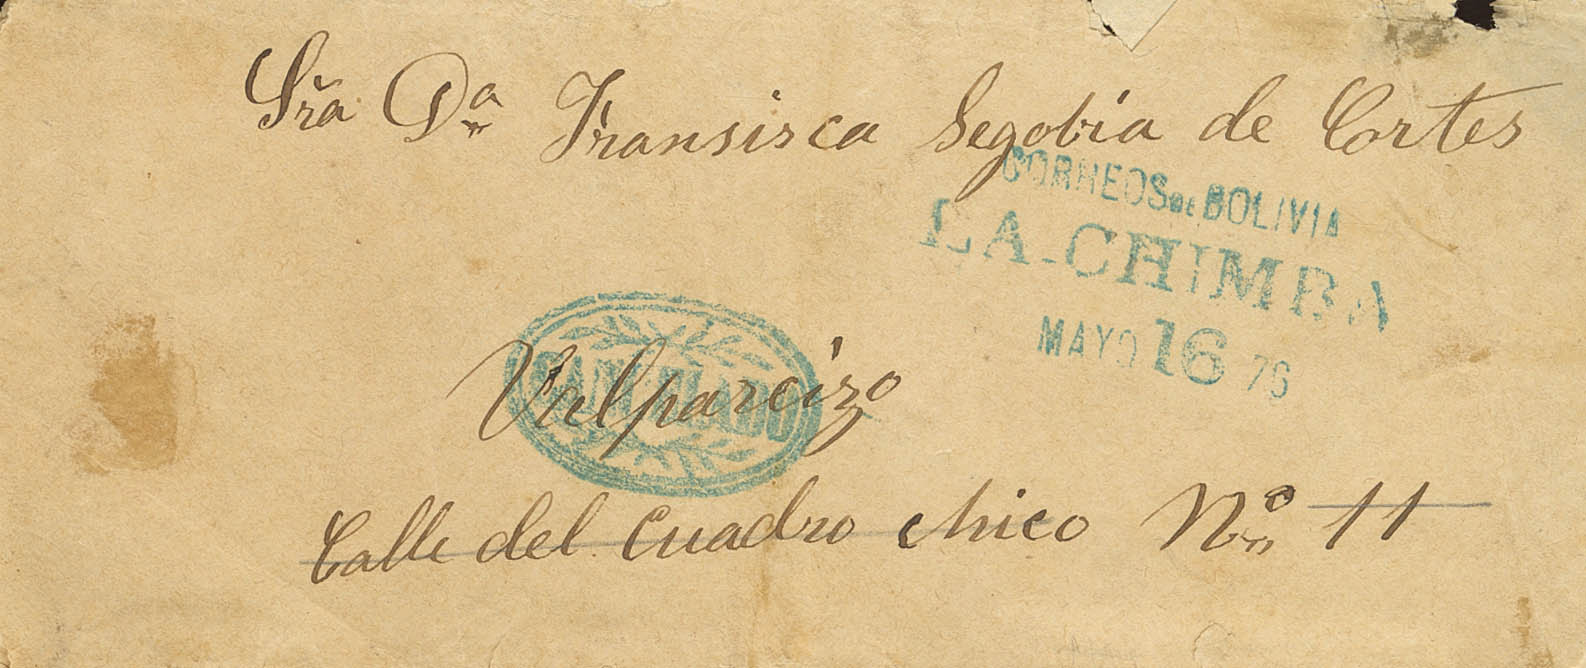 Sra Da Fransisca Segobia de Cortes
CORREOS DE BOLIVIA
LA-CHIMBA
MAYO 16 76
Valparaizo
Calle del Cuadro chico No 11